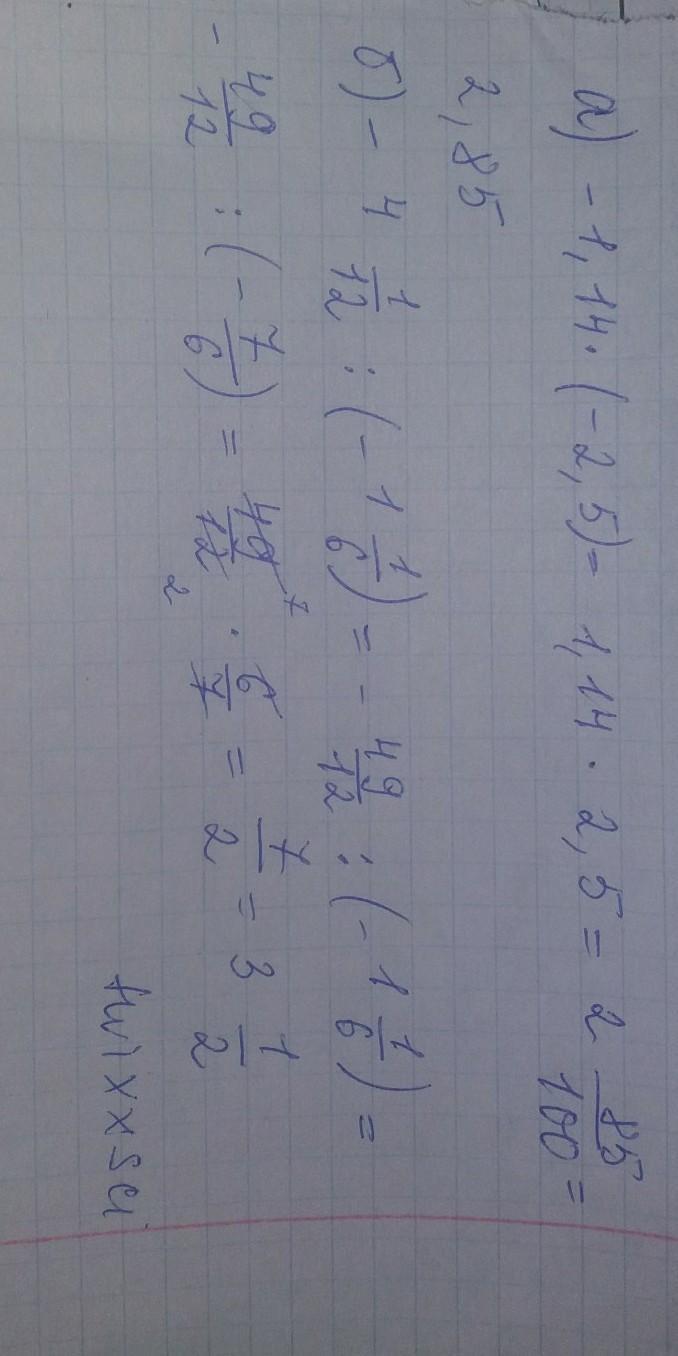 а) - 1,14 · (- 2,5) = 1,14 · 2,5 = 2 85/100 =
2,85
б) - 4 1/12 : (- 1 1/6) = - 49/12 : (- 1 1/6) =
- 49/12 : (- 7/6) = 49/12 · 6/7 = 7/2 = 3 1/2
7
2